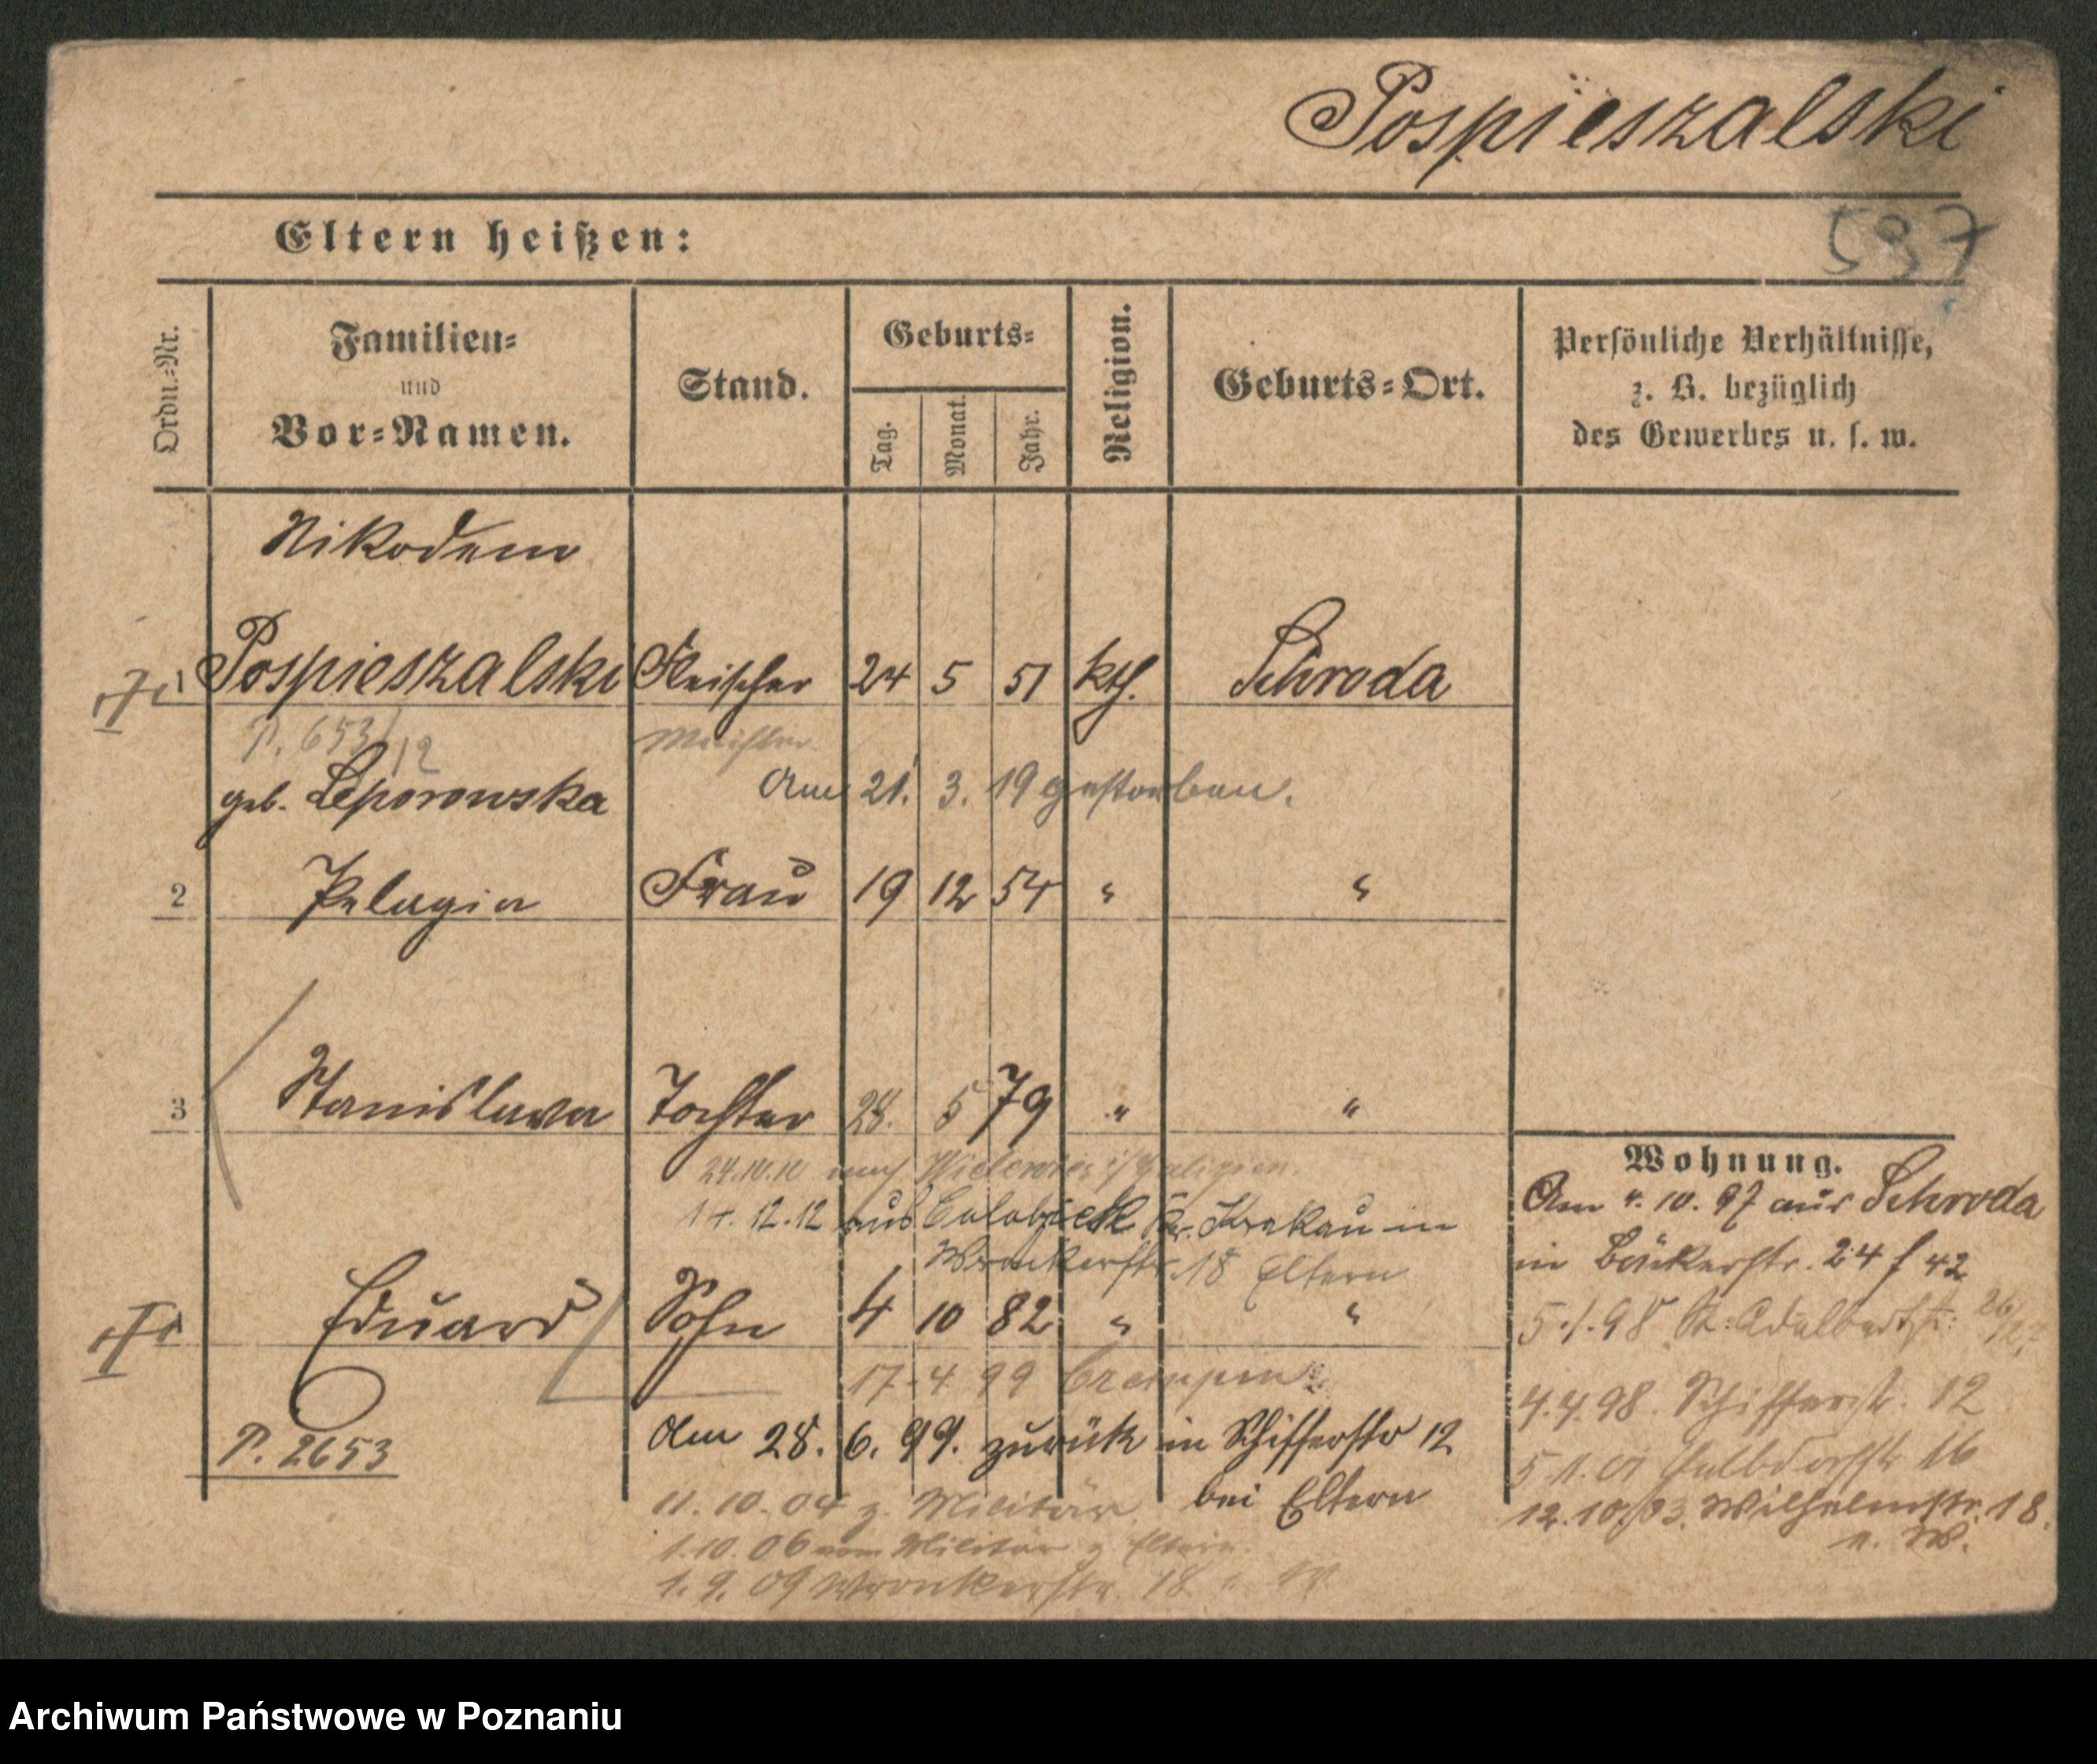 Pospieszalski
Eltern heißen:
597
Ordn.-Nr.
Familien-
und
Vor-Namen.
Stand.
Geburts-
Tag.
Monat.
Jahr.
Religion.
Geburts-Ort.
Persönliche Verhältnisse,
z. B. bezüglich
des Gewerbes u. s. w.
Nikodem
1 Pospieszalski Fleischer 24 5 51 kth. Schroda
P. 653/12 Meister
geb. Leporowska Am 21. 3. 19 gestorben.
2 Pelagia Frau 19 12 54 " "
3 Stanislawa Tochter 28. 5 79 " "
24.10.10 nach Galizien.
12.12 aus Kr. Krakau in
Wronkerstr. 18 Eltern
Eduard Sohn 4 10 82 " "
17.4 99 Czempin
P. 2653
Am 28. 6. 99. zurück in Schifferstr 12
bei Eltern
11.10.04 z. Militär
1.10.06 vom Militär z. Eltern.
1.9.09 Wronkerstr. 18
Wohnung.
Am 4.10.97 aus Schroda
in Bäckerstr. 24 f 42
5.1.98 St. Adalbertstr. 26/27
4.4.98. Schifferstr. 12
5.1.01 Halbdorfstr 16
12.10.03. Wilhelmstr. 18.
n. W.
Archiwum Państwowe w Poznaniu